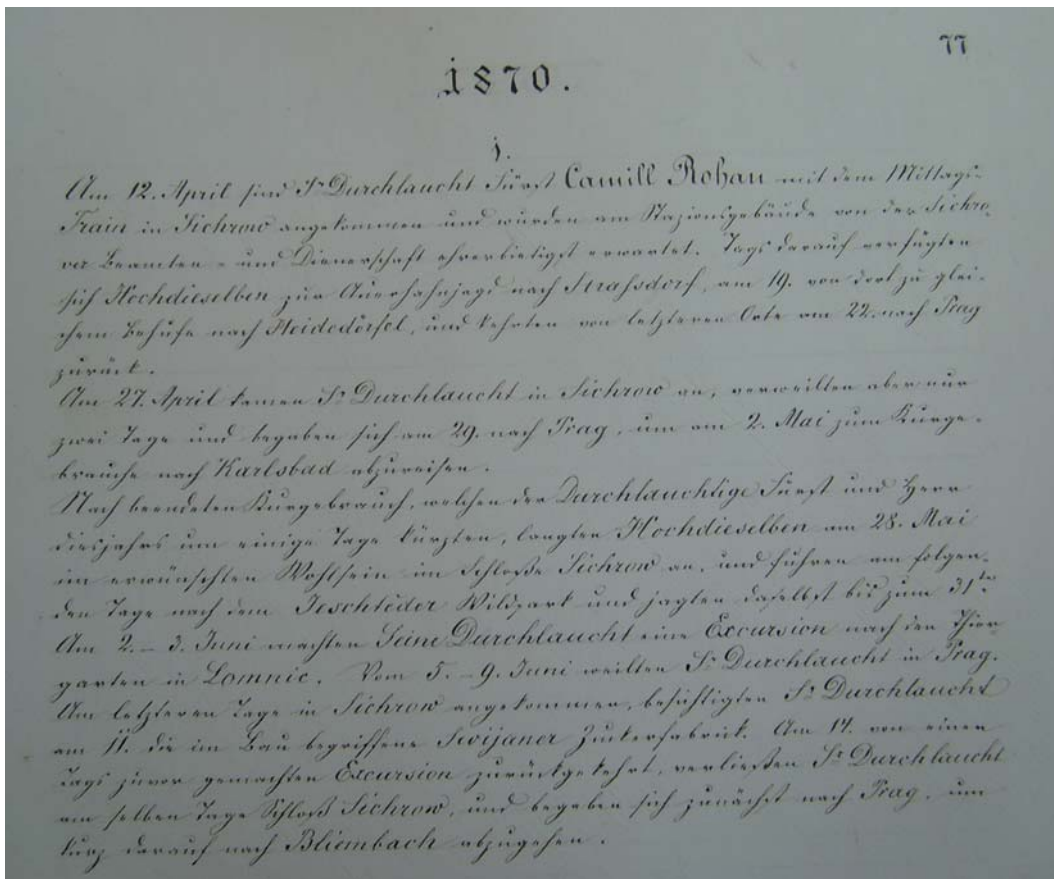 77
1870.
1.
Am 12. April sind Sr Durchlaucht Fürst Camill Rohan mit dem Mittags-
Train in Sichrow angekommen und wurden am Stazionsgebäude von der Sichro-
ver Beamten- und Dienerschaft ehrerbietigst erwartet. Tags darauf verfügten
sich Hochdieselben zur Auerhahnjagd nach Strassdorf, am 19. von dort zu glei-
chem Behufe nach Heidedörfel, und kehrten von letzteren Orte am 22. nach Prag
zurück.
Am 27. April kamen Sr Durchlaucht in Sichrow an, verweilten aber nur
zwei Tage und begaben sich am 29. nach Prag, um am 2. Mai zum Kurge-
brauche nach Karlsbad abzureisen.
Nach beendeten Kurgebrauch, welchen der Durchlauchtige Fürst und Herr
diesjahrs um einige Tage kürzten, langten Hochdieselben am 28. Mai
im erwünschten Wohlsein im Schloße Sichrow an, und fuhren am folgen-
den Tage nach dem Jeschkéder Wildpark und jagten daselbst bis zum 31ten
Am 2. – 3. Juni machten Seine Durchlaucht eine Excursion nach den Thier-
garten in Lomnic. Vom 5. – 9. Juni weilten Sr Durchlaucht in Prag.
Am letzteren Tage in Sichrow angekommen, besichtigten Sr Durchlaucht
am 11. die im Bau begriffene Swijaner Zuckerfabrick. Am 14. von einen
Tags zuvor gemachten Excursion zurückgekehrt, verließen Sr Durchlaucht
am selben Tage Schloß Sichrow, und begaben sich zunächst nach Prag, um
kurz darauf nach Bliembach abzugehen.